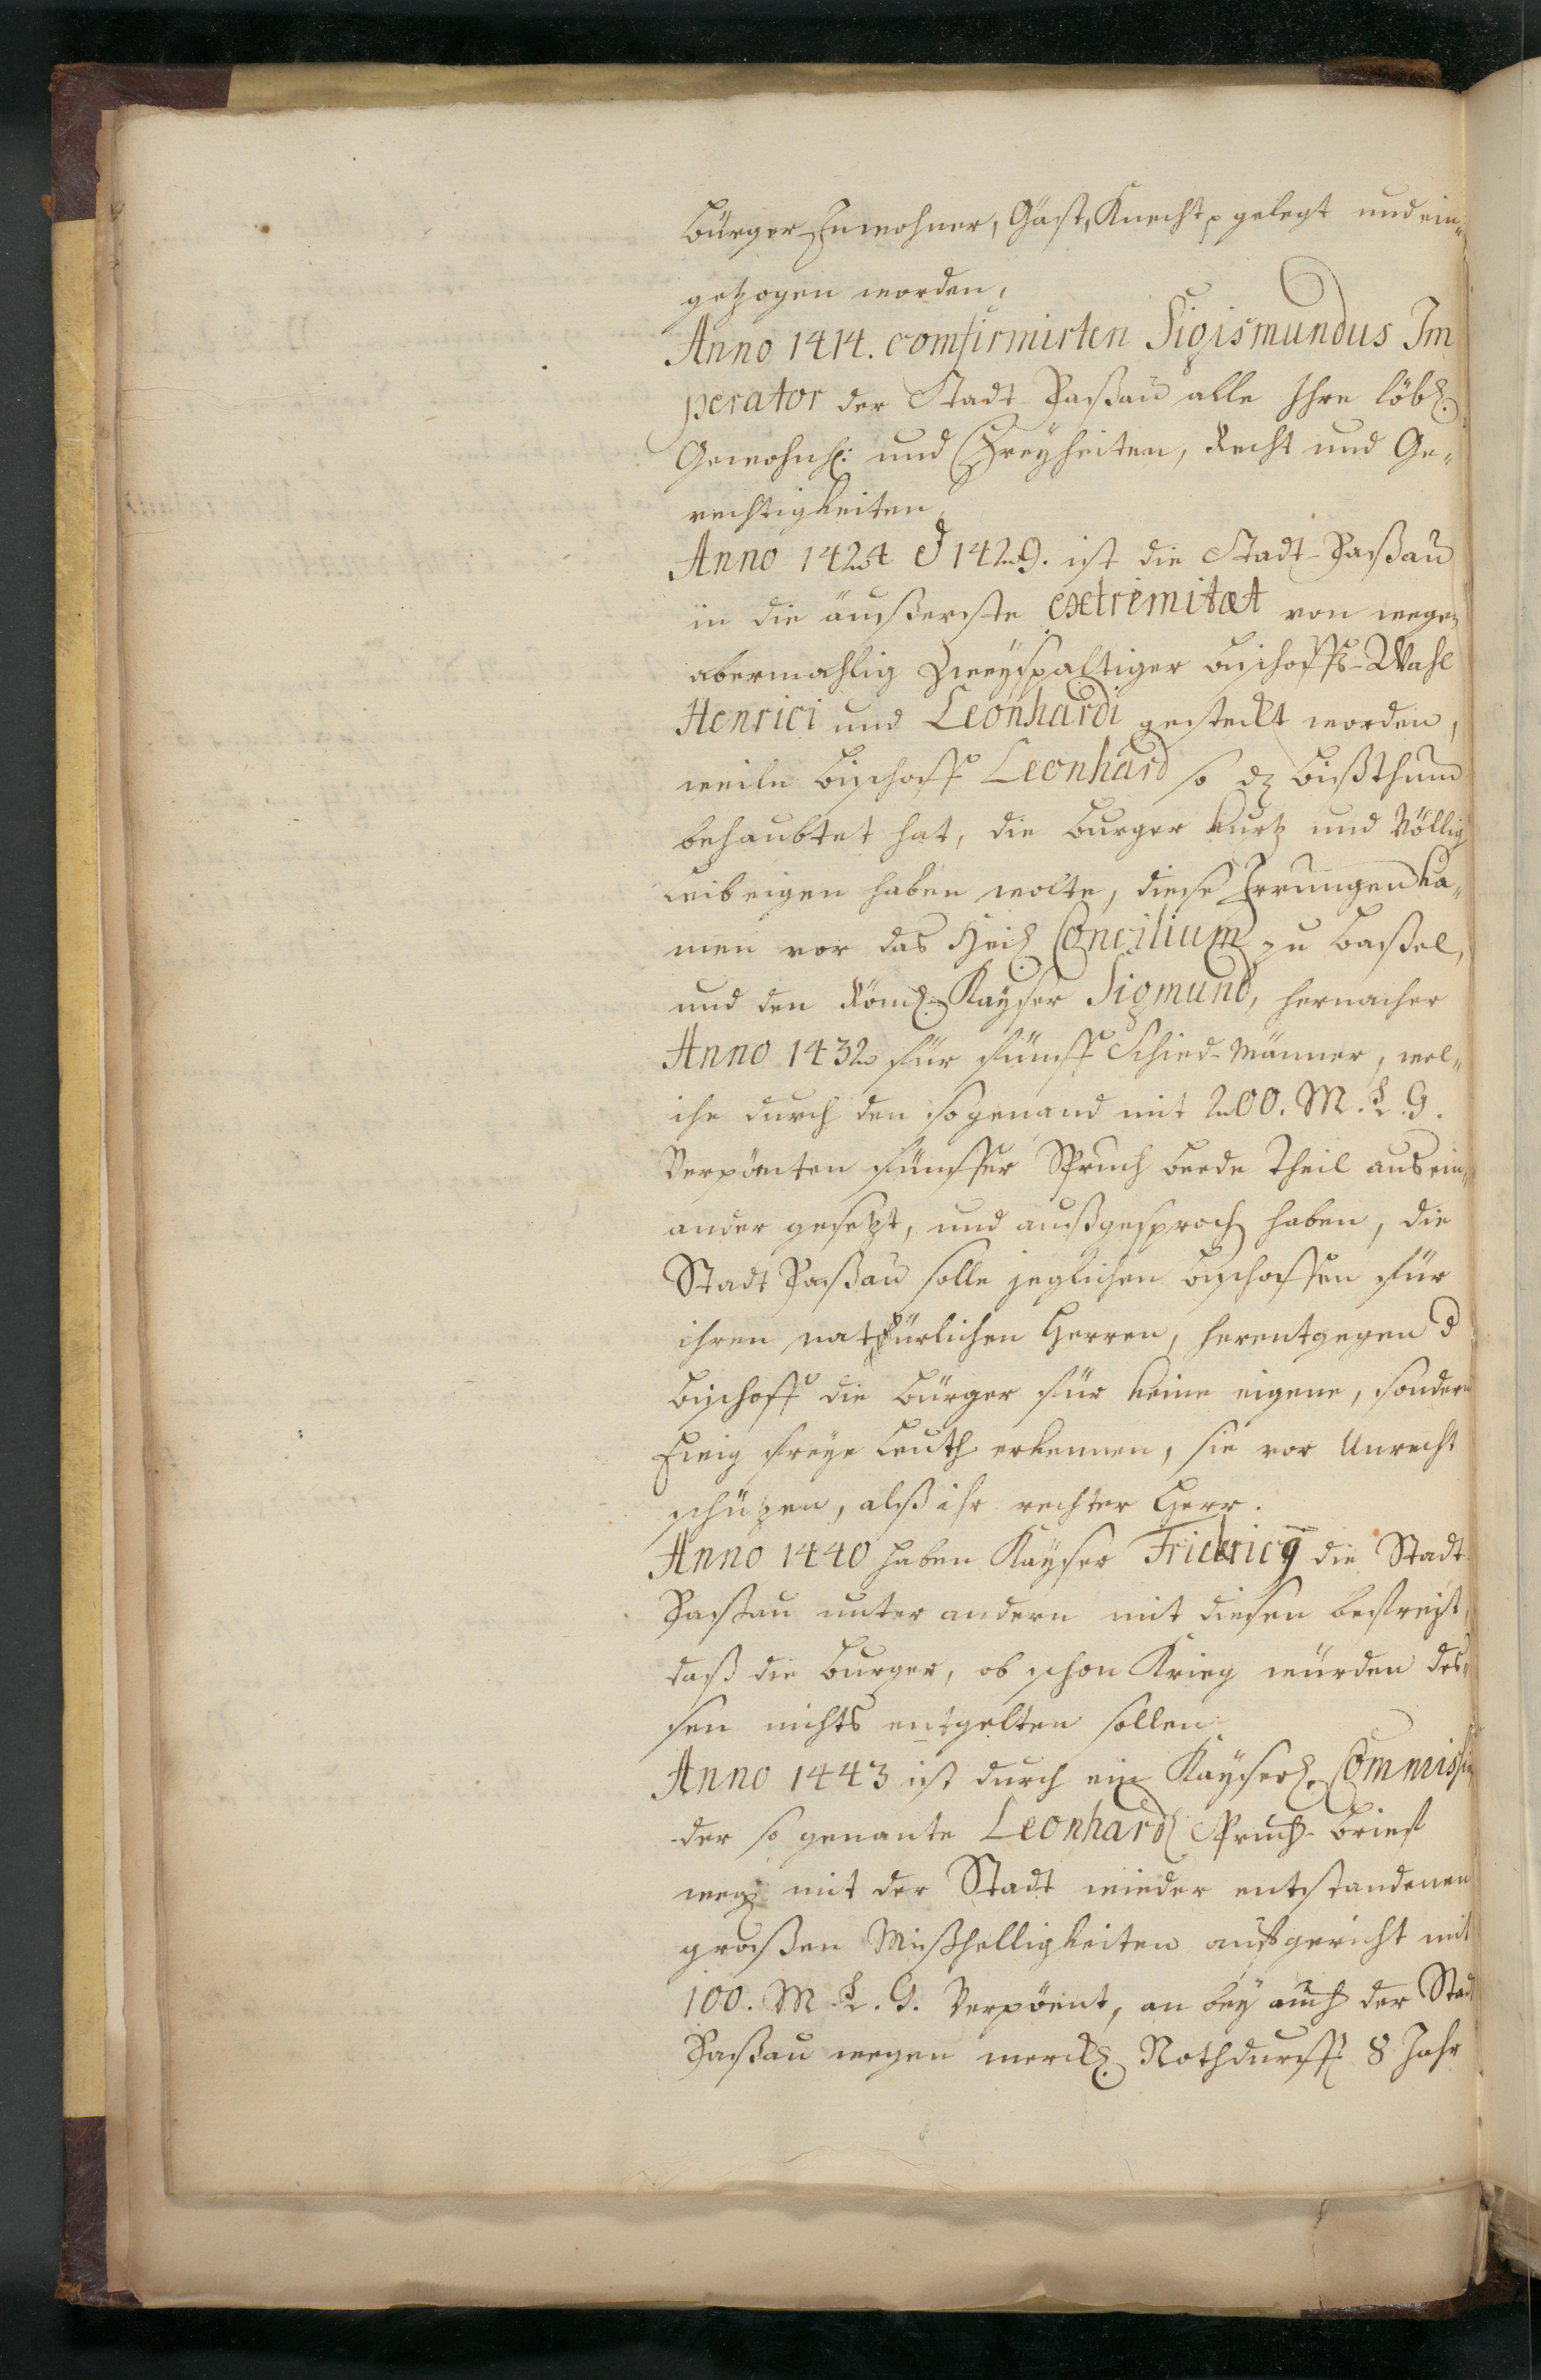 Bürger Inwohner, Gäst, Knecht p gelegt und ein„
getzogen worden,
Anno 1414. comfirmirten Sigismundus Im
perator der Stadt Paßau alle Ihre löbl.
Gewohnh: und Freyheiten, Recht und Ge„
rechtigkeiten
Anno 1424 et 1429. ist die Stadt-Paßau
in die äusserste extremitæt von wegen
abermahlig Zweyspaltiger Bischoffs-Wahl
Henrici und Leonhardi gesteckt worden,
weile Bischoff Leonhard so dz Bißthum
behaubtet hat, die Burger kurtz und Völlig
leibeigen haben wolte, diese Irrungen ka„
men vor das Heil Concilium zu Baßel,
und den Röml. Kayser Sigmund, hernacher
Anno 1432 für fünff Schied-Männer, wel„
che durch den sogenand mit 200. M. L. G.
Verpönten fünffer Spruch beede Theil aus ein„
ander gesetzt, und außgesproch haben, die
Stadt Paßau solle jeglichen Bischoffen für
ihren natürlichen Herren, herentgegen d
Bischoff die Bürger für keine eigene, sondern
Ewig freye Leuth erkennen, sie vor Unrecht
schützen, alß ihr rechter Herr.
Anno 1440 haben Kayser Fridericg die Stadt
Paßau unter andern mit diesen befreyt,
daß die Burger, ob schon Krieg würden des„
sen nichts entgelten sollen
Anno 1443 ist durch ein Kayserl. Commission
der so genante Leonhard Spruch-Brief
weg mit der Stadt wieder entstandenen
großen Mißhelligkeiten aufgericht mit
100. M. L. G. Verpöent, an bey auch der Stadt
Paßau wegen merckl. Nothdurfft 8 Jahr